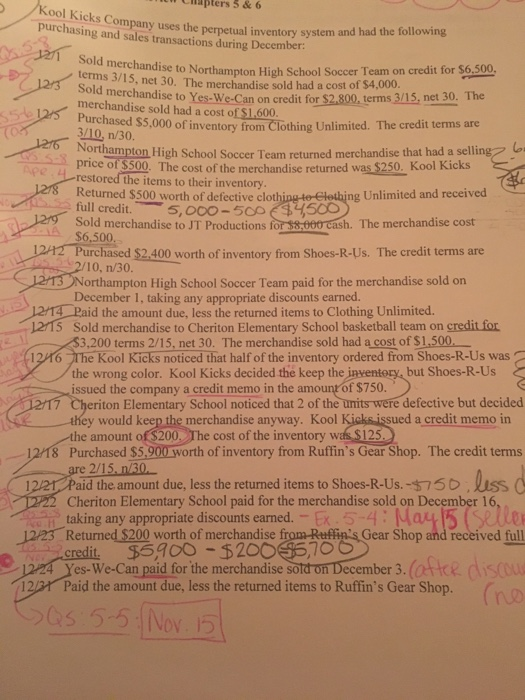 Chapters 5 & 6
Kool Kicks Company uses the perpetual inventory system and had the following
purchasing and sales transactions during December:
12/1 Sold merchandise to Northampton High School Soccer Team on credit for $6,500,
terms 3/15, net 30. The merchandise sold had a cost of $4,000.
12/3 Sold merchandise to Yes-We-Can on credit for $2,800, terms 3/15, net 30. The
merchandise sold had a cost of $1,600.
12/5 Purchased $5,000 of inventory from Clothing Unlimited. The credit terms are
3/10, n/30.
12/6 Northampton High School Soccer Team returned merchandise that had a selling
price of $500. The cost of the merchandise returned was $250. Kool Kicks
restored the items to their inventory.
12/8 Returned $500 worth of defective clothing to Clothing Unlimited and received
full credit. 5,000-500 $4500
12/9 Sold merchandise to JT Productions for $8,000 cash. The merchandise cost
$6,500.
12/12 Purchased $2,400 worth of inventory from Shoes-R-Us. The credit terms are
2/10, n/30.
12/13 Northampton High School Soccer Team paid for the merchandise sold on
December 1, taking any appropriate discounts earned.
12/14 Paid the amount due, less the returned items to Clothing Unlimited.
12/15 Sold merchandise to Cheriton Elementary School basketball team on credit for
$3,200 terms 2/15, net 30. The merchandise sold had a cost of $1,500.
12/16 The Kool Kicks noticed that half of the inventory ordered from Shoes-R-Us was
the wrong color. Kool Kicks decided the keep the inventory, but Shoes-R-Us
issued the company a credit memo in the amount of $750.
12/17 Cheriton Elementary School noticed that 2 of the units were defective but decided
they would keep the merchandise anyway. Kool Kicks issued a credit memo in
the amount of $200. The cost of the inventory was $125.
12/18 Purchased $5,900 worth of inventory from Ruffin's Gear Shop. The credit terms
are 2/15, n/30.
12/21 Paid the amount due, less the returned items to Shoes-R-Us. -$750. less
12/22 Cheriton Elementary School paid for the merchandise sold on December 16,
taking any appropriate discounts earned. - Ex. 5-4: May 15 (Seller
12/23 Returned $200 worth of merchandise from Ruffin's Gear Shop and received full
credit. $5900 - $200 $5,700
12/24 Yes-We-Can paid for the merchandise sold on December 3. (after
12/31 Paid the amount due, less the returned items to Ruffin's Gear Shop. (no
QS: 5-5: Nov. 15